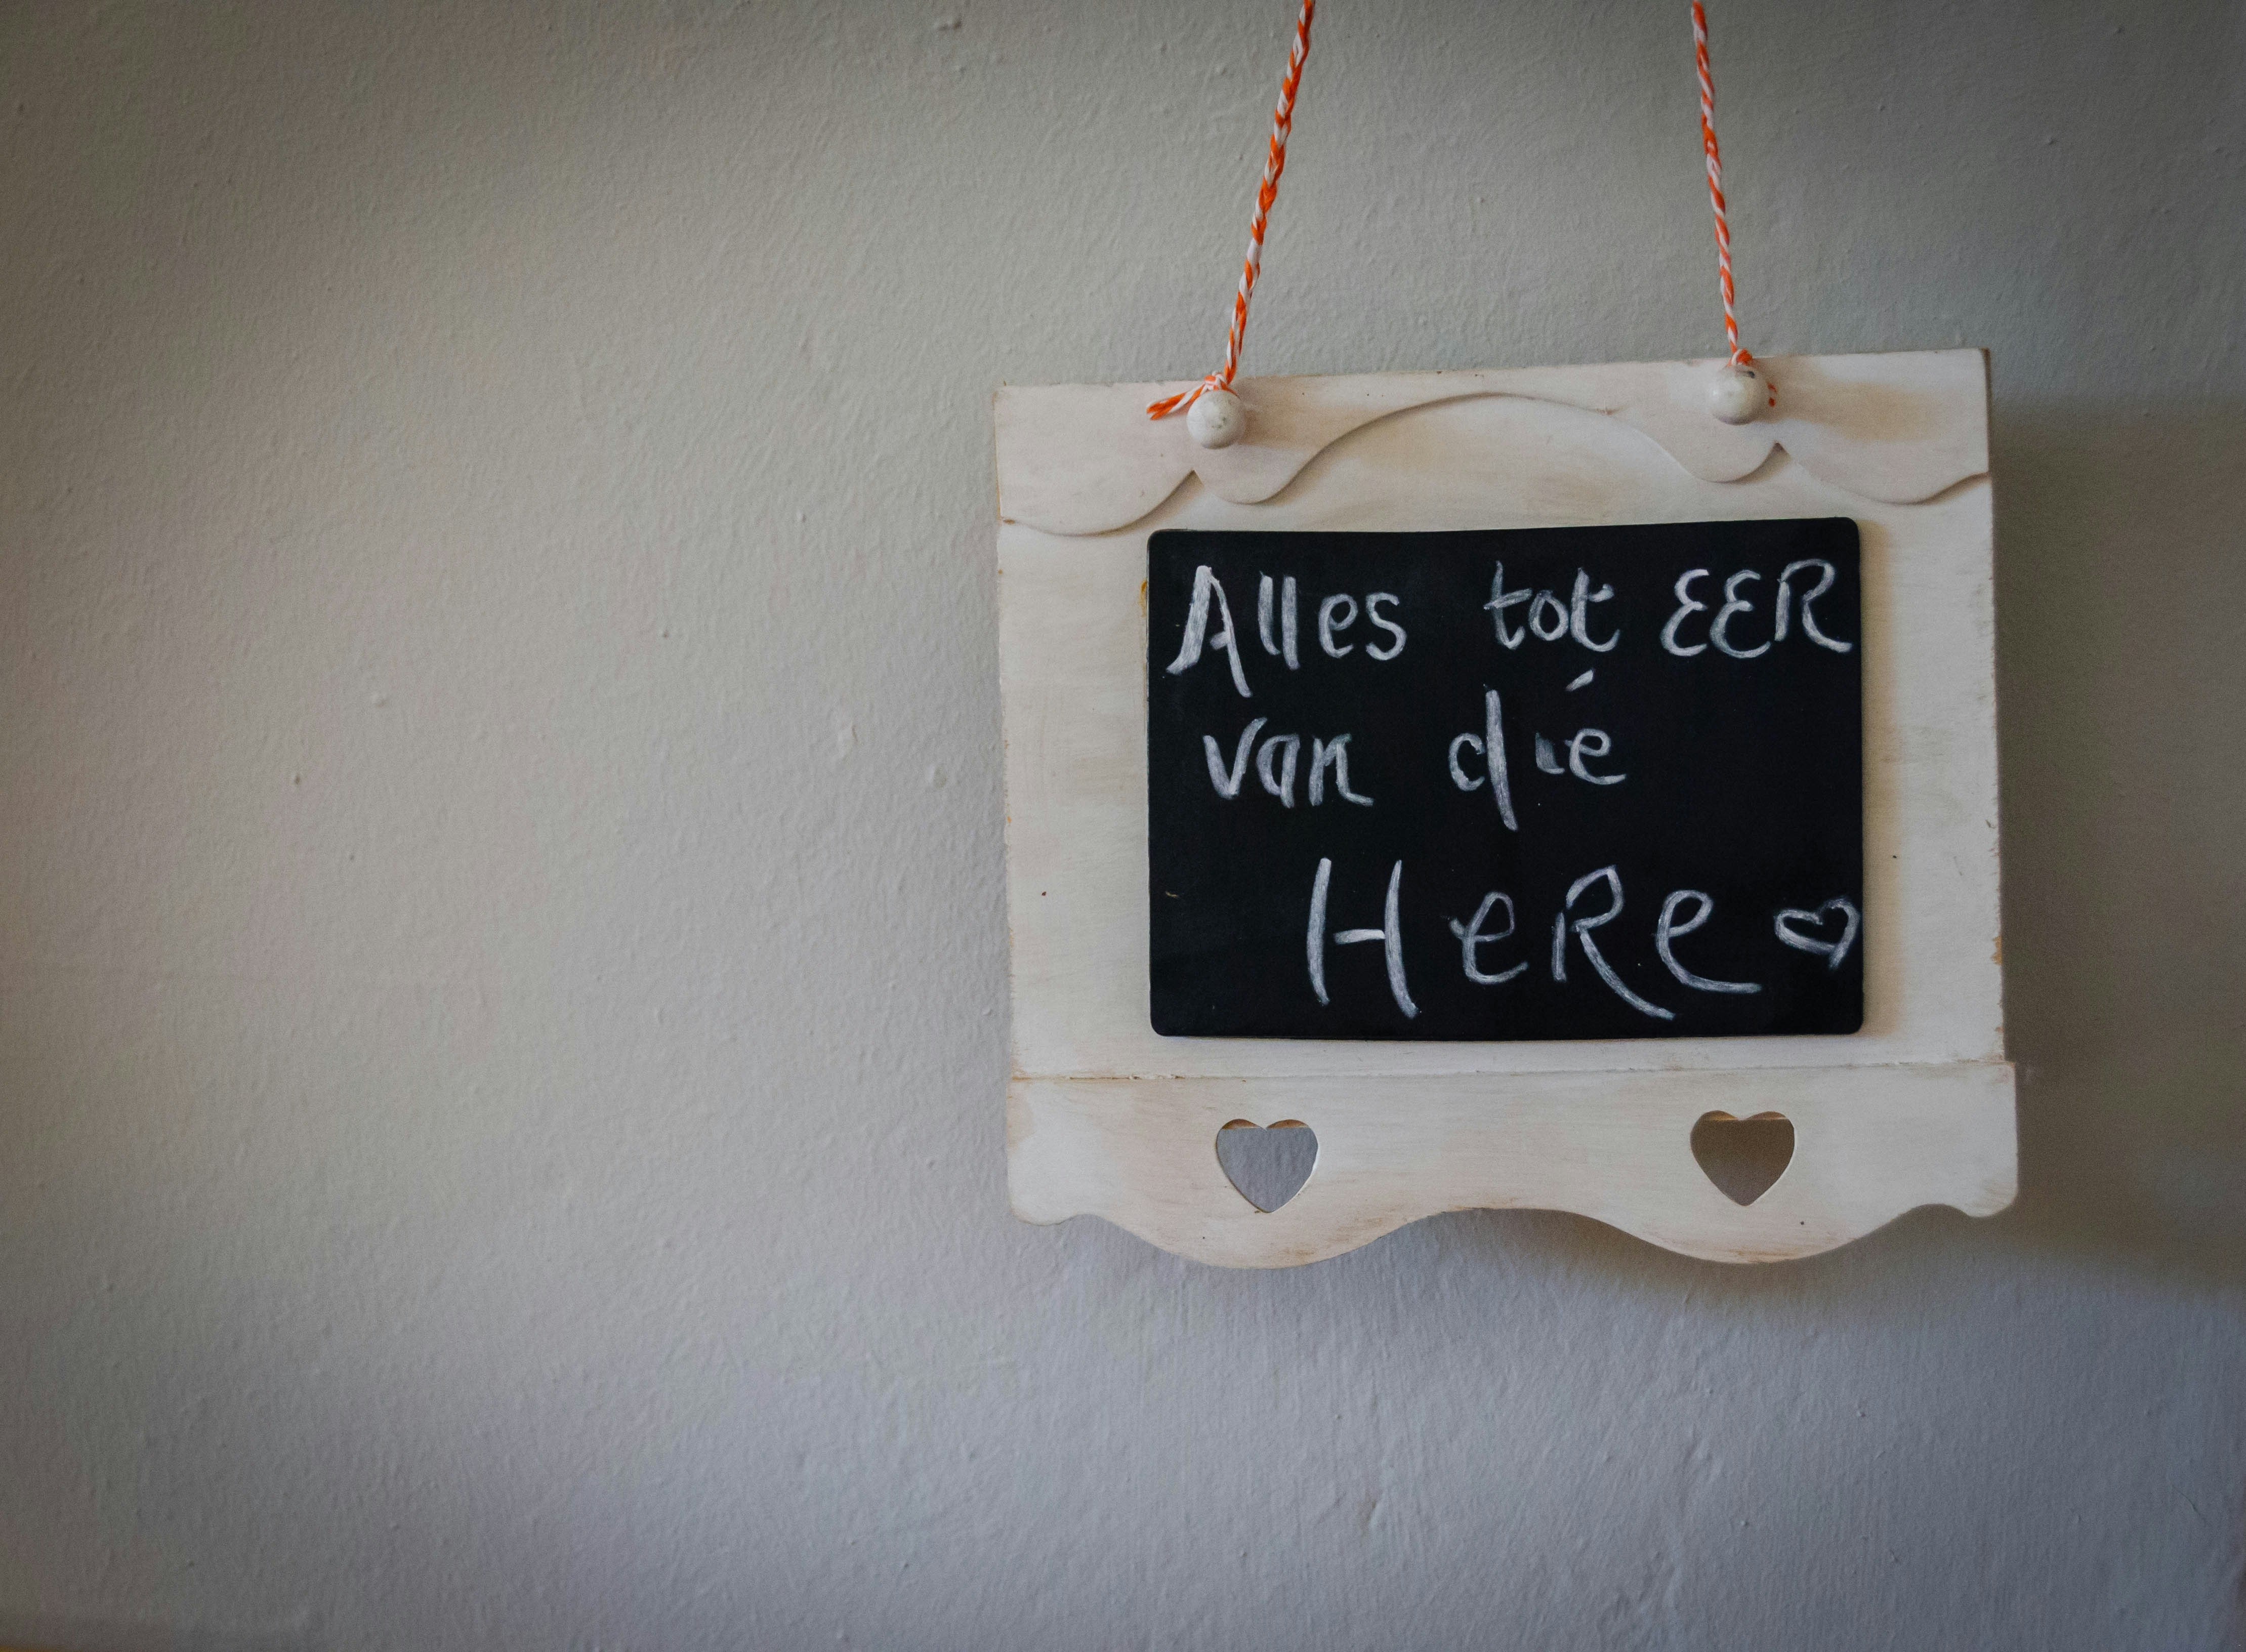 Alles tot EER
van dié
HeRe ♡